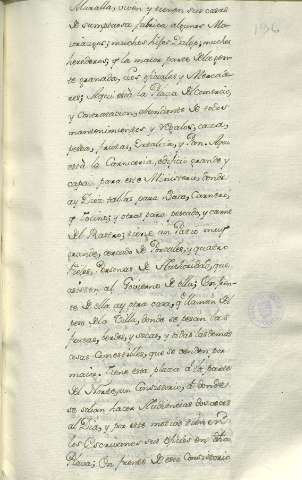 196
Muralla, viven, y tienen sus casas
de sumptuosa fabrica algunos Ma-
iorazgos; muchos hijos dalgo, muchos
herederos, y la maior parte de la gen-
te granada, los oficiales y Mercade-
res; Aqui està la Plaza de Comercio,
y Contratacion, abundante de todos
mantenimientos y regalos, caza,
pesca, frutas, y Pan. Aqui
està la Carniceria, edificio grande, y
capaz para este Ministerio, donde
ay Diez tablas para Baca, Carnero,
y Tocino; y otras para pescado, y carne
del Rastro; tiene un Patio muy
grande, cercado de Portales, y quatro
fieles, Personas de Authoridad, que
asisten al Govierno de ella; En fren-
te de ella ay otra casa, q llaman el
peso de la Villa, donde se pesan las
frutas, verdes, y secas, y todas las demas
cosas Comestibles, que se venden por
maior. Tiene esta plaza à la parte
del Norte, un Consistorio, à donde
se solian hacer Audiencias dos veces
al Dia, y por este motivo tienen
los Escrivanos sus oficios en dha
Plaza; En frente de este Consistorio